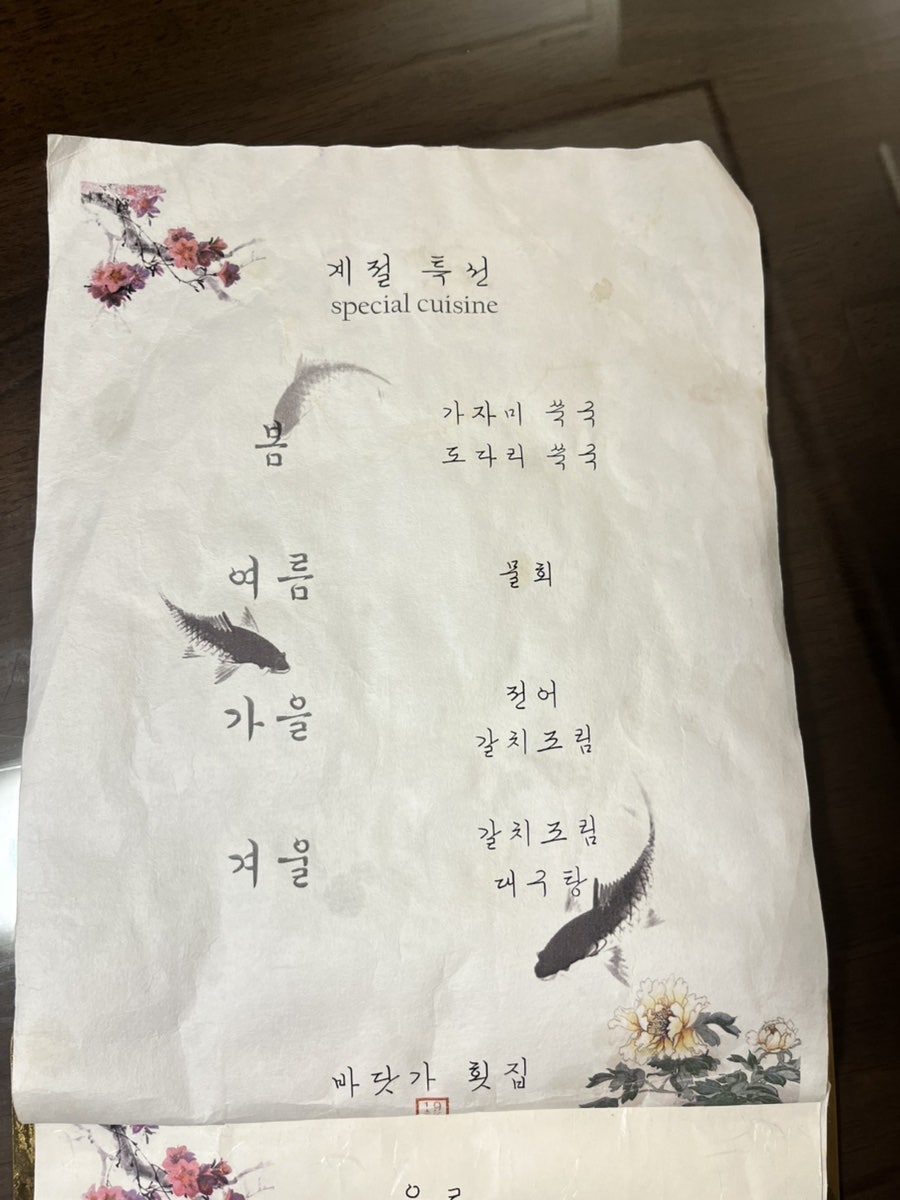 계절 특선
special cuisine
봄
가자미 쑥국
도다리 쑥국
여름
물회
가을
전어
갈치조림
겨울
갈치조림
대구탕
바닷가 횟집